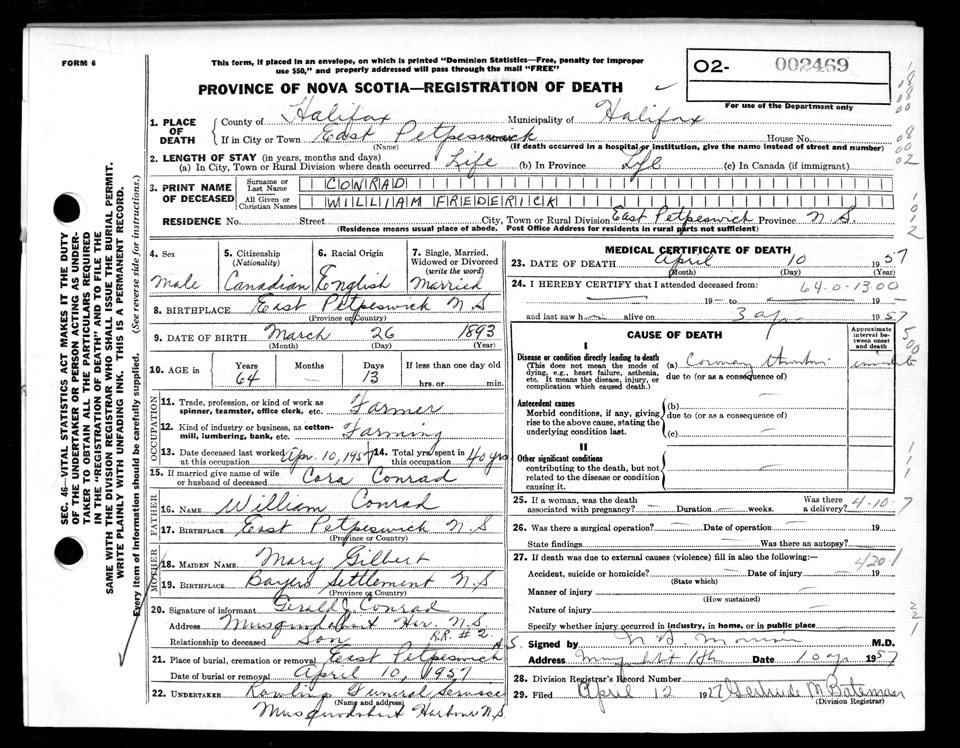 FORM 6
This form, if placed in an envelope, on which is printed "Dominion Statistics—Free, penalty for improper
use $50," and properly addressed will pass through the mail "FREE"
O2- 002469
For use of the Department only
PROVINCE OF NOVA SCOTIA—REGISTRATION OF DEATH
1. PLACE OF DEATH
County of Halifax Municipality of Halifax
If in City or Town East Petpeswick House No.
(Name) (If death occurred in a hospital or institution, give the name instead of street and number)
2. LENGTH OF STAY (in years, months and days)
(a) In City, Town or Rural Division where death occurred Life (b) In Province Life (c) In Canada (if immigrant)
3. PRINT NAME OF DECEASED
Surname or Last Name CONRAD
All Given or Christian Names WILLIAM FREDERICK
RESIDENCE No. Street City, Town or Rural Division East Petpeswick Province N.S.
(Residence means usual place of abode. Post Office Address for residents in rural parts not sufficient)
4. Sex
Male
5. Citizenship (Nationality)
Canadian
6. Racial Origin
English
7. Single, Married, Widowed or Divorced (write the word)
Married
8. BIRTHPLACE East Petpeswick N S
(Province or Country)
9. DATE OF BIRTH March 26 1893
(Month) (Day) (Year)
10. AGE in Years Months Days If less than one day old
64 — 13 hrs. or min.
OCCUPATION
11. Trade, profession, or kind of work as spinner, teamster, office clerk, etc. Farmer
12. Kind of industry or business, as cotton-mill, lumbering, bank, etc. Farming
13. Date deceased last worked at this occupation Apr. 10, 1957
14. Total yrs. spent in this occupation 40 yrs
15. If married give name of wife or husband of deceased Cora Conrad
FATHER
16. NAME William Conrad
17. BIRTHPLACE East Petpeswick N S
(Province or Country)
MOTHER
18. MAIDEN NAME Mary Gilbert
19. BIRTHPLACE Bayers Settlement N S
(Province or Country)
20. Signature of informant Gerald J. Conrad
Address Musquodoboit Hbr. N.S.
R.R. # 2
Relationship to deceased Son
21. Place of burial, cremation or removal East Petpeswick N.S.
Date of burial or removal April 10, 1957
22. UNDERTAKER Rowlings Funeral Service
(Name and address)
Musquodoboit Harbour N.S
MEDICAL CERTIFICATE OF DEATH
23. DATE OF DEATH April 10 1957
(Month) (Day) (Year)
24. I HEREBY CERTIFY that I attended deceased from:
64-0-13.00
19 — to 19 —
and last saw h alive on 3 Apr 1957
CAUSE OF DEATH
Approximate interval between onset and death
I
Disease or condition directly leading to death
(This does not mean the mode of dying, e.g., heart failure, asthenia, etc. It means the disease, injury, or complication which caused death.)
(a)
due to (or as a consequence of)
Antecedent causes
Morbid conditions, if any, giving rise to the above cause, stating the underlying condition last.
(b)
due to (or as a consequence of)
(c)
II
Other significant conditions
contributing to the death, but not related to the disease or condition causing it.
25. If a woman, was the death associated with pregnancy? — Duration — weeks. Was there a delivery?
4-10-7
26. Was there a surgical operation? — Date of operation — 19
State findings Was there an autopsy?
27. If death was due to external causes (violence) fill in also the following:
4201
Accident, suicide or homicide? Date of injury 19
(State which)
Manner of injury
(How sustained)
Nature of injury
Specify whether injury occurred in industry, in home, or in public place
Signed by M.D.
Address Date 10 Apr 1957
28. Division Registrar's Record Number
29. Filed April 12 1957 Gertrude M Bateman
(Division Registrar)
SEC. 46—VITAL STATISTICS ACT MAKES IT THE DUTY
OF THE UNDERTAKER OR PERSON ACTING AS UNDER-
TAKER TO OBTAIN ALL THE PARTICULARS REQUIRED
IN THE "REGISTRATION OF DEATH" AND TO FILE THE
SAME WITH THE DIVISION REGISTRAR WHO SHALL ISSUE THE BURIAL PERMIT.
WRITE PLAINLY WITH UNFADING INK. THIS IS A PERMANENT RECORD.
Every item of information should be carefully supplied. (See reverse side for instructions.)